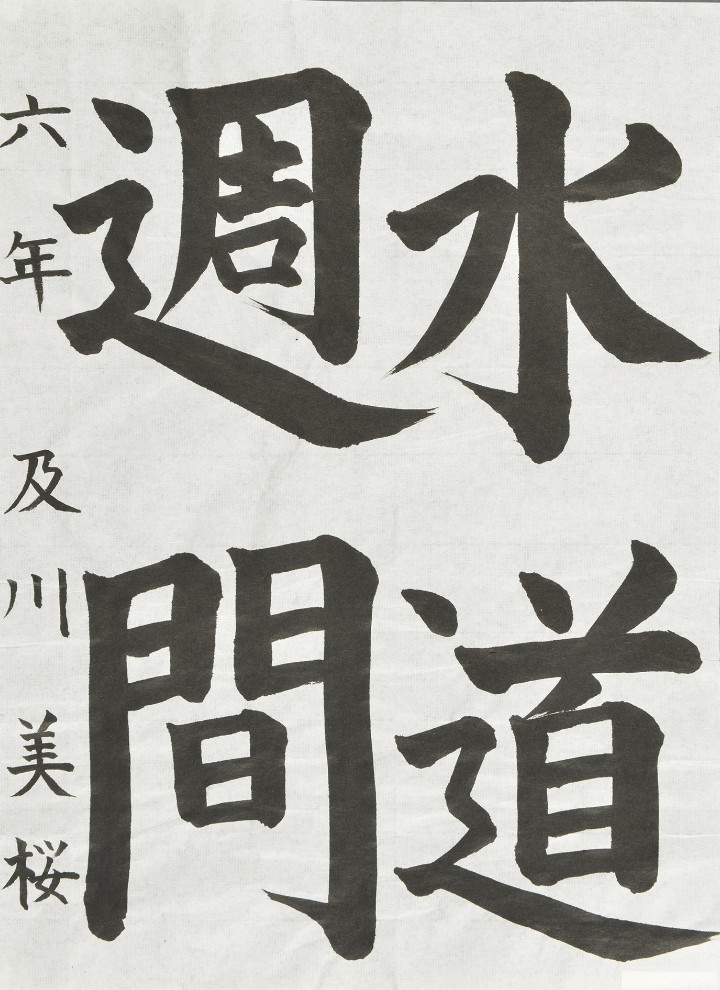 水道
週間
六年 及川美桜